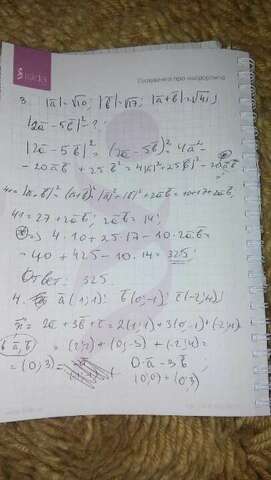 3. |a̅| = √10; |b̅| = √17; |a̅+b̅| = √41;
|2a̅ - 5b̅|² - ?
|2a̅ - 5b̅|² = (2a̅ - 5b̅)² = 4a̅² -
- 20a̅b̅ + 25b̅² = 4|a̅|² + 25|b̅|² - 20a̅b̅
41 = |a̅+b̅|² = (a̅+b̅)² = |a̅|² + |b̅|² + 2a̅b̅ = 10+17+2a̅b̅;
41 = 27 + 2a̅b̅; 2a̅b̅ = 14;
⊛ => 4·10 + 25·17 - 10·2a̅b̅ =
= 40 + 425 - 10·14 = 325
Ответ: 325.
4. a̅(1;1); b̅(0;-1); c̅(-2;4);
= 2a̅ + 3b̅ + c̅ = 2(1;1) + 3(0;-1) + (-2;4)
= (2;2) + (0;-3) + (-2;4) =
= (0;3) = 0·a̅ - 3b̅
(0;0) + (0;3)